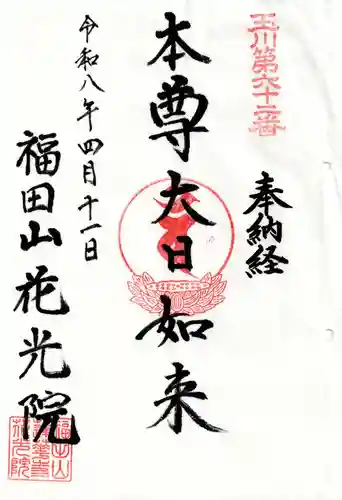 玉川第六十二番
奉納経
本尊大日如来
令和八年四月十一日
福田山花光院